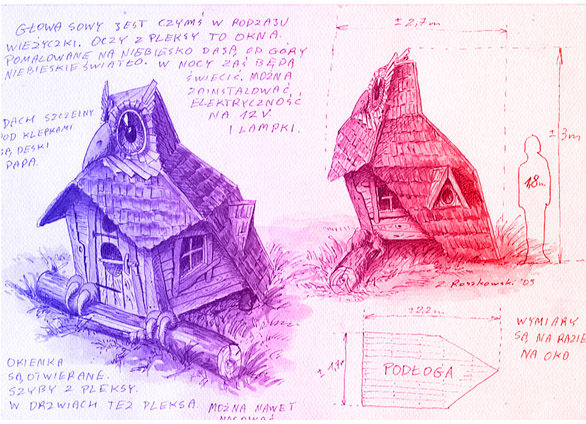 GŁOWA SOWY JEST CZYMŚ W RODZAJU
WIEŻYCZKI. OCZY Z PLEKSY TO OKNA.
POMALOWANE NA NIEBIESKO DASĄ OD GÓRY
NIEBIESKIE ŚWIATŁO. W NOCY ZAŚ BĘDĄ
ŚWIECIĆ. MOŻNA
ZAINSTALOWAĆ
ELEKTRYCZNOŚĆ
NA 12 V
I LAMPKI.
DACH SZCZELNY
POD KLEPKAMI
SĄ DESKI
PAPA.
± 2,7m
± 3m
1,8m
Z. Roszkowski '03
± 2,2m
PODŁOGA
WYMIARY
SĄ NA RAZIE
NA OKO
OKIENKA
SĄ OTWIERANE.
SZYBY Z PLEKSY.
W DRZWIACH TEŻ PLEKSA.
MOŻNA NAWET